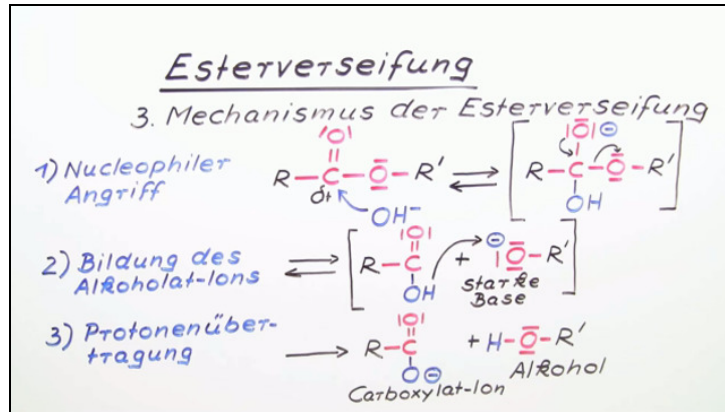 Esterverseifung
3. Mechanismus der Esterverseifung
1) Nucleophiler
Angriff
|O|
R-C-O-R'
δ+
OH⁻
|O|⊖
R-C-O-R'
OH
2) Bildung des
Alkoholat-Ions
|O|
R-C
OH
+
⊖
|O-R'
starke
Base
3) Protonenüber-
tragung
|O|
R-C
O⊖
+ H-O-R'
Carboxylat-Ion
Alkohol